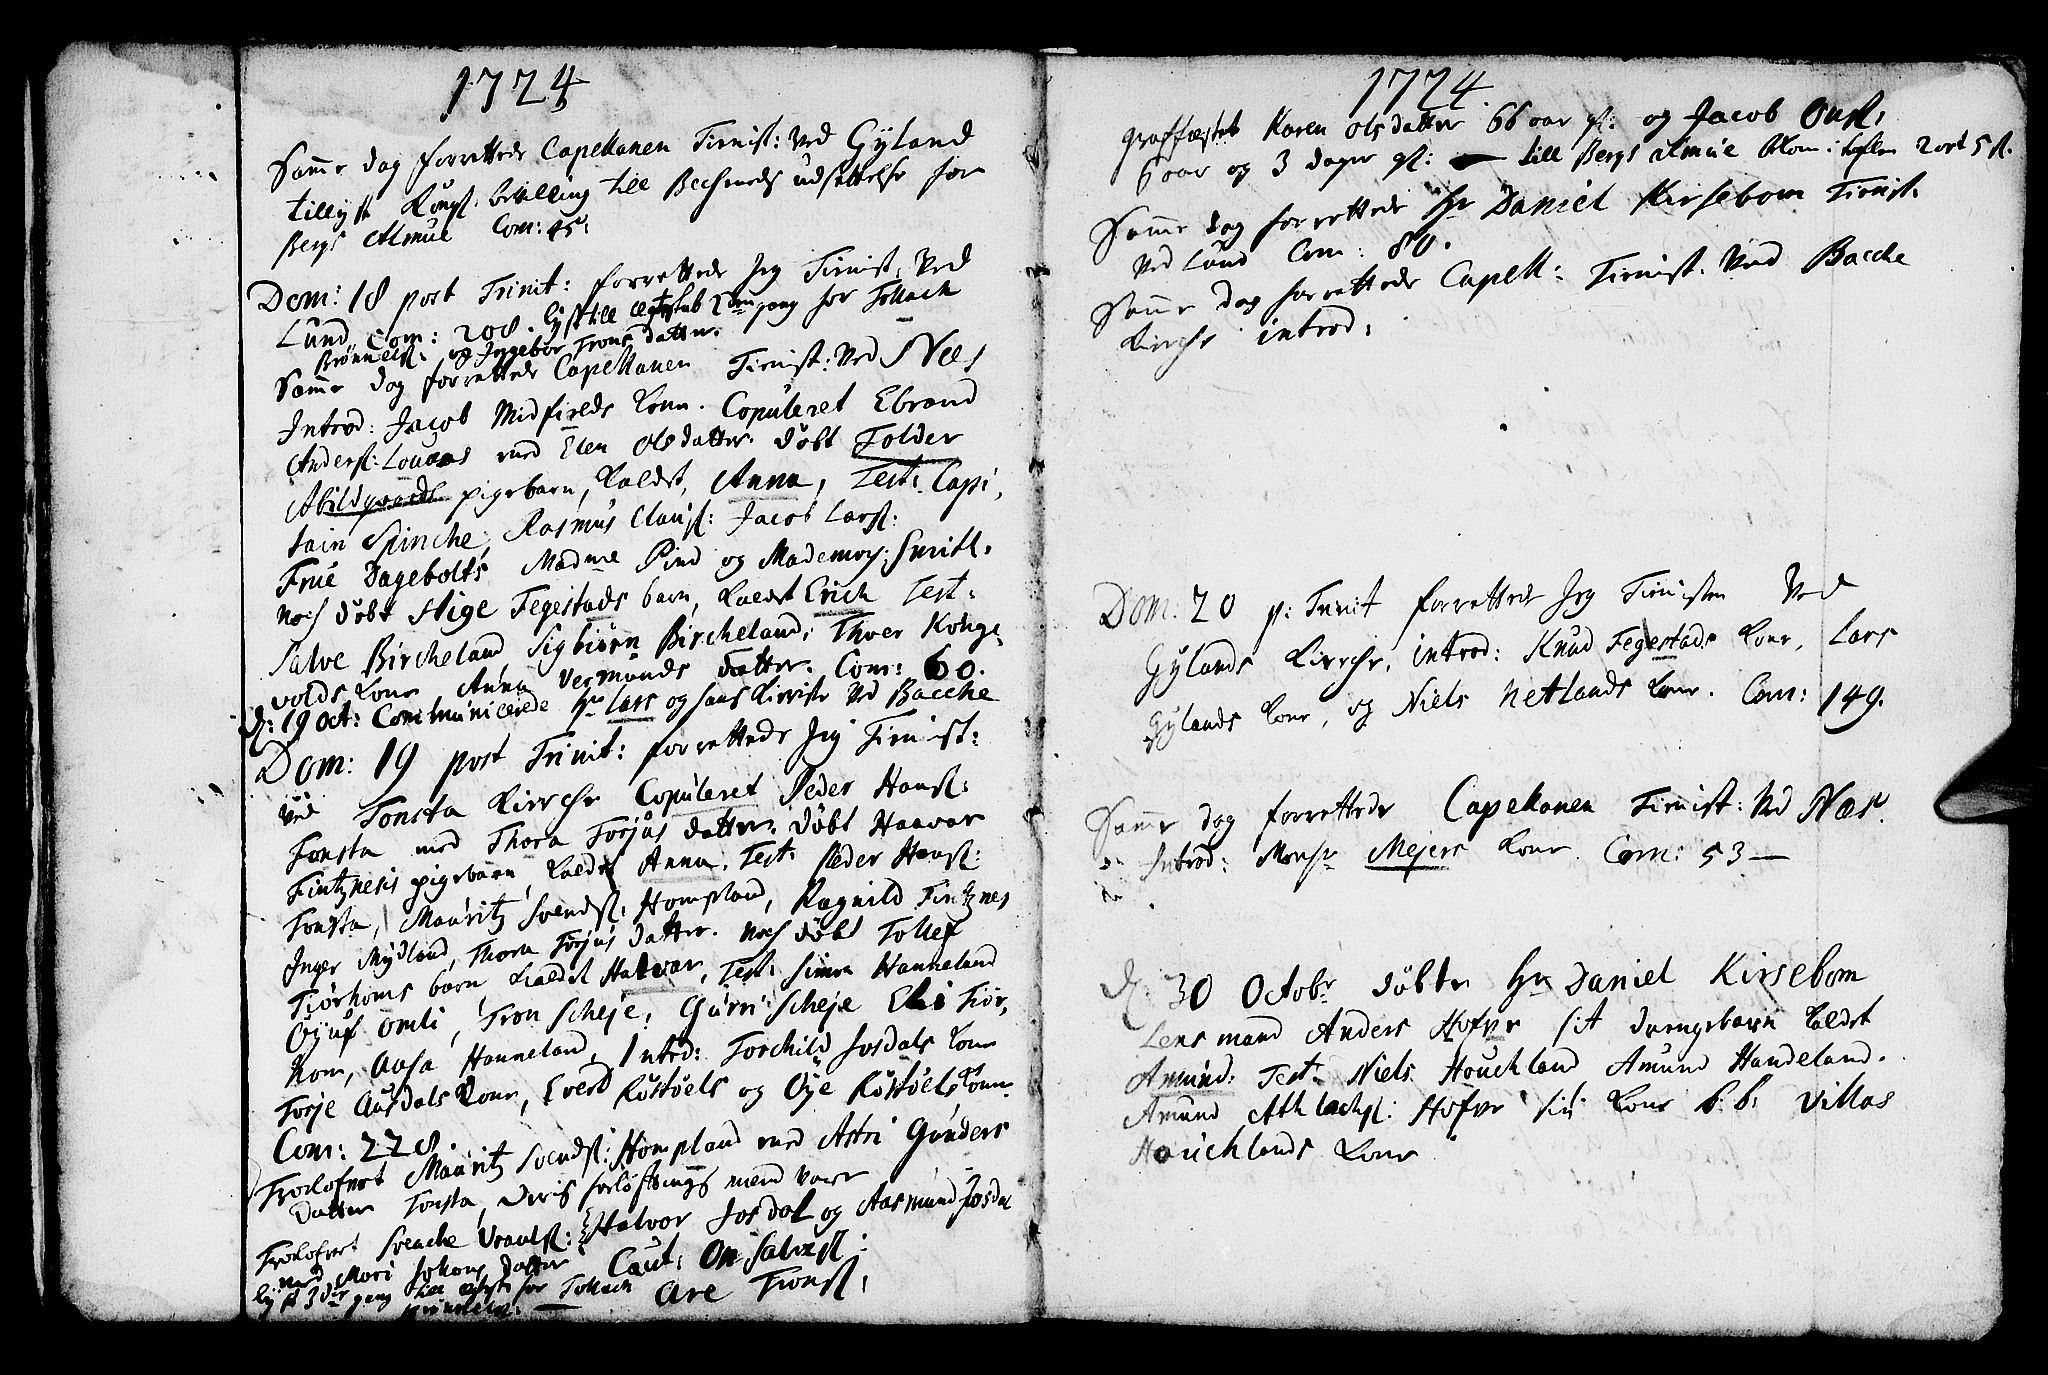 1724
Samme dag forrettede Capellanen Tienist: Ved Gyland
tillyst Kongl. bevilling till Becsmeds udsættelse for
Bergs Almue Com: 45:
Dom: 18 post Trinit: forrettede Jeg Tienist: Ved
Lund, Com: 208. lyst till Egteskab 2den gang for Tollach
Brønnelss: og Ingebor Trons datter.
Samme dag forrettede Capellanen Tienist: Ved Næs
Introd: Jacob Midfields Kone. Copuleret Ebrand
Anderss: Louaas med Elen Olsdatter. døbt Tolder
Abildgaards pigebarn, kaldet, Anna, Test: Capi,
tain Spinche, Rasmus Clauss: Jacob Larss:
Frue Dagebolts Madme Pind og Mademoy: Smith.
noch døbt Stige Fegestads barn, kaldet Erich Test:
Salve Bircheland, Sigbiørn Bircheland, Thoer Konge,
volds Kone, Anna Vermunds datter. Com: 60.
d: 19 Oct: Communicerede Hr Lars og hans Kierste Ved Bacche
Dom: 19 post Trinit: forrettede Jeg Tienist:
Ved Tonsta Kirche Copuleret Peder Hanss:
Tonsta med Thora Torjus datter. døbt Haavar
Fintznesis pigebarn, kaldet Anna. Test: Peder Hanss:
Tonsta, Mauritz Svendss: Hompland, Ragnild Fintznes
Inger Mydland, Thora Torjus datter. noch døbt Tollef
Tiørhoms barn kaldet Halvar, Test: Simon Hanneland
Ojuf Omli, Tron Scheje, Gurri Scheje Eli Tiør,
hom, Aasa Hanneland, Introd: Torchild Josdals Kone
Torje Ausdals Kone, Everd Røstøels og Øye Røstøels Kone.
Com: 228.
Trolofvet Mauritz Svendss: Hompland med Astri Gunders
Datter Tonsta, Deris forløftnings mend vare
Trolofvet Svenche Vraalss: Halvor Josdal og Aasmund Josdal
med Mari Johans datter Caut: On Salvess:
lyst 3die gang till Egtesk for Tollach Are Tronss:
Brønnelss:
1724
graffæstet Karen Olsdatter 66 aar gl: og Jacob Onss:
6 aar og 3 dager gl: till Bergs Almue kom i taflen 2 ort 5 s.
Samme dag forrettede Hr Daniel Kirsebom Tienist.
Ved Lund Com: 80.
Samme dag forrettede Capell: Tienist. Ved Bacche
Kirche introd:
Dom: 20 p: Trinit forrettede Jeg Tienisten Ved
Gylands Kirche, introd: Knud Fegestads Kone, Lars
Gylands Kone, og Niels Netlands Kone. Com: 149.
Samme dag forrettede Capellanen Tienist: Ved Næs.
Introd: Monsr Mejers Kone. Com: 53 —
d: 30 Octobr døbte Hr Daniel Kirsebom
Lensmand Anders Hofve sit drengebarn kaldet
Amund: Test: Niels Houchland Amund Handeland.
Amund Athlachss: Hofve sin Kone b. b: Villas
Houchlands Kone